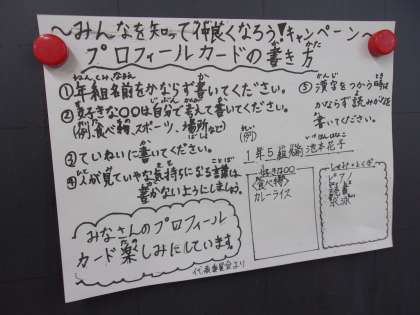 ～みんなを知って仲良くなろう！キャンペーン～
プロフィールカードの書き方
①年組名前をかならず書いてください。
②好きな〇〇は自分で考えて書いてください。
(例)食べ物、スポーツ、場所など)
③ていねいに書いてください。
④人が見ていやな気持ちになる言葉は
書かないようにしましょう。
⑤漢字をつかう時は
かならず読みがなを
書いてください。
(例)
1年5組
池本花子
好きな〇〇
食べ物
カレーライス
しゅみ・とくぎ
ピアノ
読書
水泳
みなさんのプロフィール
カード楽しみにしています。
代表委員会より